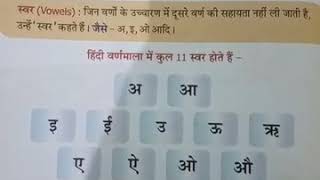 स्वर (Vowels) : जिन वर्णों के उच्चारण में दूसरे वर्ण की सहायता नहीं ली जाती है,
उन्हें 'स्वर' कहते हैं। जैसे - अ, इ, ओ आदि।
हिंदी वर्णमाला में कुल 11 स्वर होते हैं -
अ आ
इ ई उ ऊ ऋ
ए ऐ ओ औ